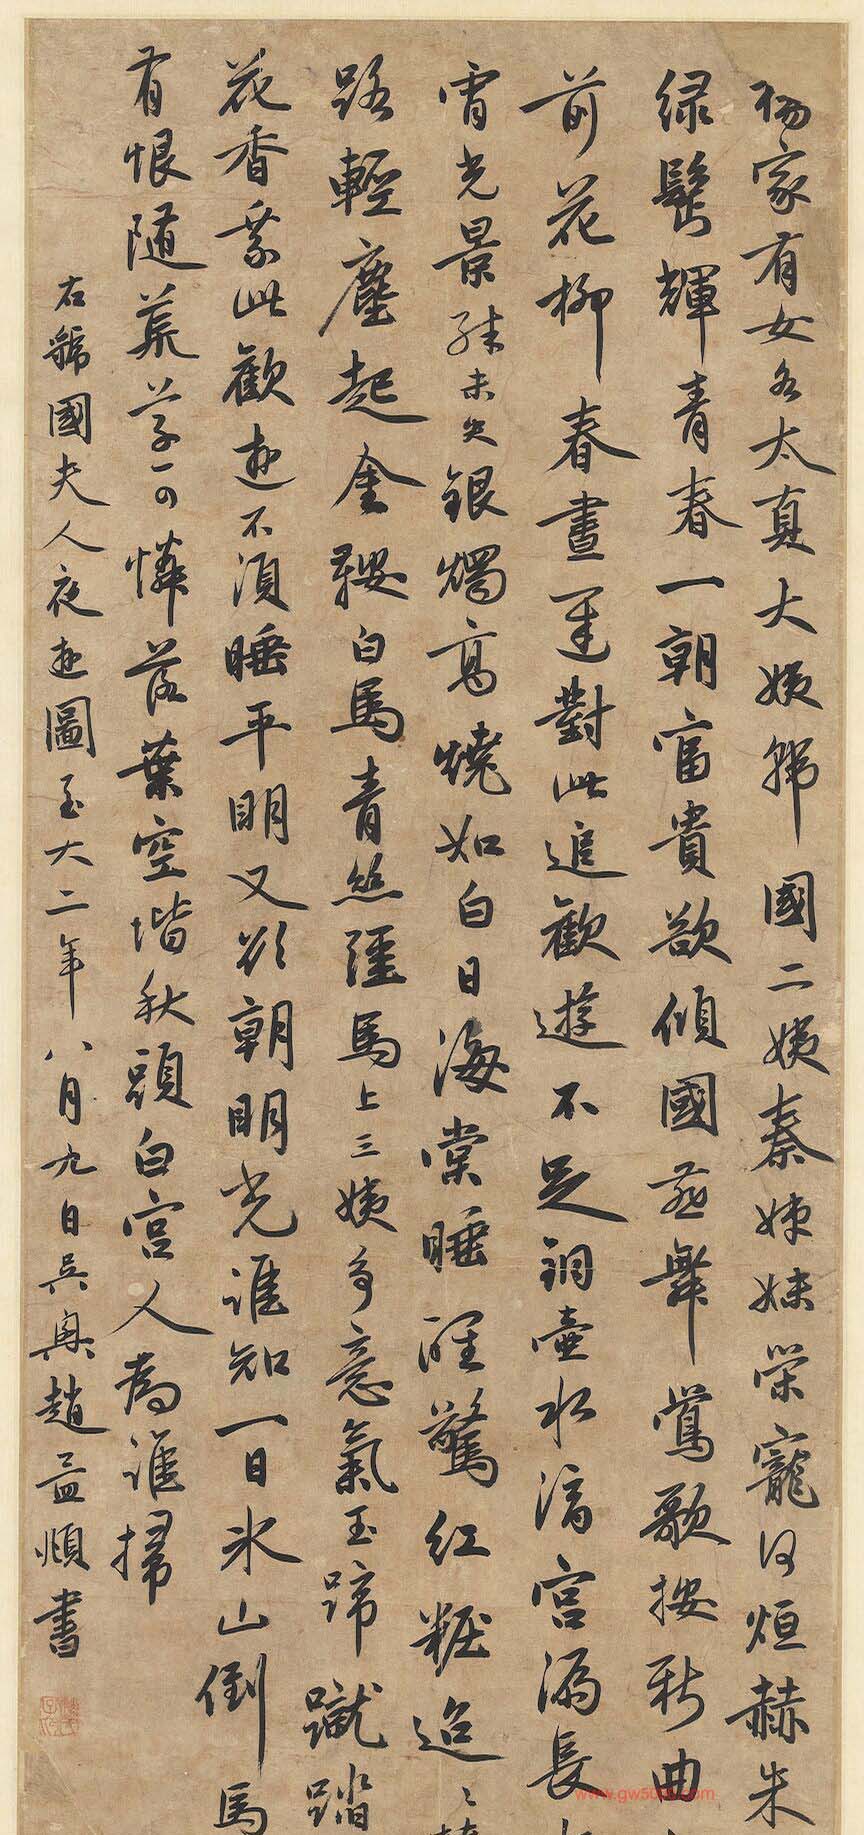 楊家有女名太真大姨虢國二姨秦姊妹榮寵何烜赫朱
綠鬢輝青春一朝富貴欲傾國燕舞鶯歌按新曲
前花柳春晝遲對此追歡遊不足銅壺水滴宮漏長
宵光景殊未央銀燭高燒如白日海棠睡醒驚紅粧迢〻
路輕塵起金鞍白馬青絲韁馬上三姨多意氣玉蹄蹴踏
花香乘此歡遊不須睡平明又欲朝明光誰知一日冰山倒馬
有恨隨荒草可憐落葉空堦秋頭白宮人為誰掃
右虢國夫人夜遊圖至大二年八月九日吳興趙孟頫書
www.gw5000.com